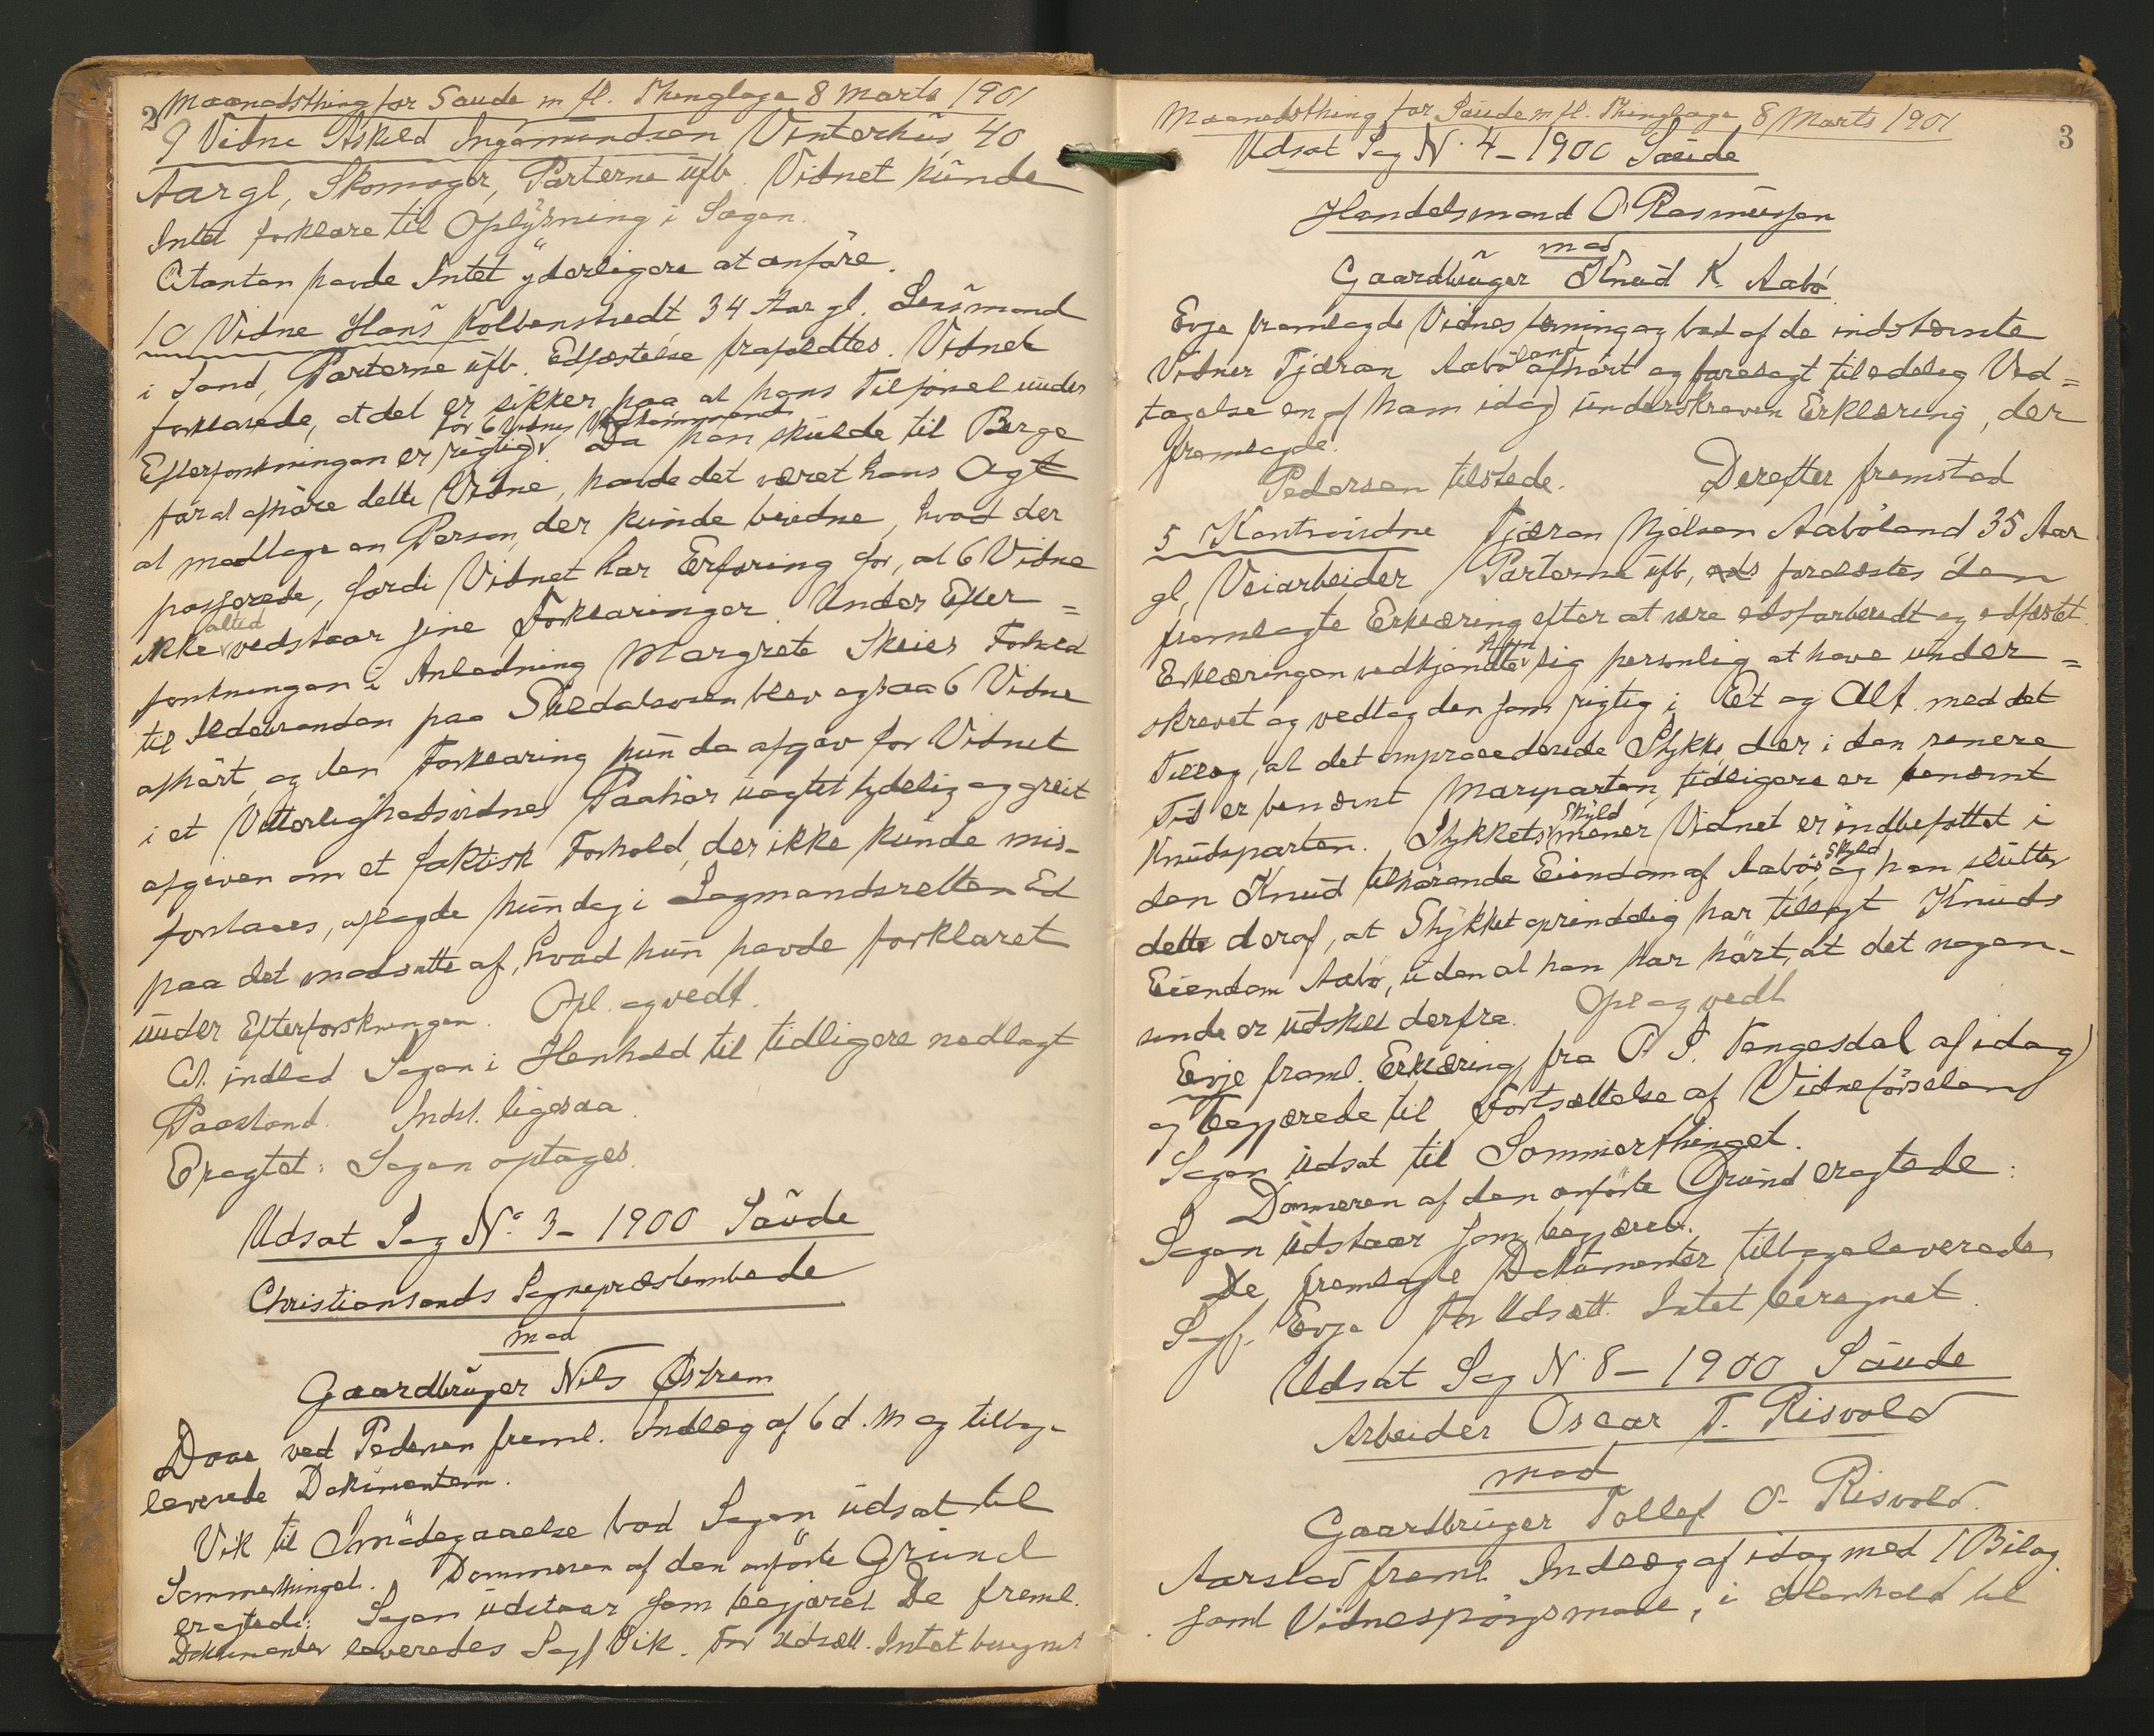 2
Maanedsthing for Saude m fl. Thinglage 8 Marts 1901
9 Vidne Askild Ingemundsen Vinterhus, 40
Aar gl, Skomager, Parterne ufb. Vidnet kunde
Intet forklare til Oplysning i Sagen.
Citanten havde Intet yderligere at anføre.
10 Vidne Hans Kolbenstvedt 34 Aar gl. Lensmand
i Sand, Parterne ufb. Edfæstelse frafaldtes. Vidnet
forklarede, at det er sikker paa at hans Tilførsel under
Efterforskningen er rigtig for 6 Vidnes Vedkommende. Da han skulde til Berge
for at afhøre dette Vidne, havde det været hans Agt
at medtage en Person, der kunde bevidne, hvad der
passerede, fordi Vidnet har Erfaring for, at 6 Vidne
ikke altid vedstaar sine Forklaringer. Under Efter=
forskningen i Anledning Margrete Skeies Forhold
til Ildebranden paa Suldalsosen blev ogsaa 6 Vidne
afhørt, og den Forklaring hun da afgav for Vidnet
i et Vitterlighedsvidnes Paahør uagtet tydelig og greit
afgiven om et faktisk Forhold, der ikke kunde mis-
forstaaes, aflagde hun dog i Lagmandsretten Ed
paa det modsatte af, hvad hun havde forklaret
under Efterforskningen. Opl. og vedt.
Ct. indlod Sagen i Henhold til tidligere nedlagt
Paastand. Indst. ligesaa.
Eragtet: Sagen optages.
Udsat Sag No. 3 - 1900 Saude
Christiansands Sognepræstembede
mod
Gaardbruger Nils Østrem
Daae ved Pedersen freml. Indlæg af 6 d. M og tilbage-
leverede Dokumenterne.
Vik til Imødegaaelse bad Sagen udsat til
Sommerthinget. Dommeren af den anførte Grund
eragtede: Sagen udstaar som begjæret. De freml.
Dokumenter leveredes Sagf Vik. For Udsætt. Intet beregnet
3
Maanedsthing for Saude m fl. Thinglage 8 Marts 1901
Udsat Sag N. 4 - 1900 Saude
Handelsmand O Rasmussen
mod
Gaardbruger Knud K. Aabø
Evje fremlagde Vidnestævning og bad af de indstævnte
Vidner Tjæran Aabøland afhørt og forelagt til edelig Ved=
tagelse en af ham idag underskreven Erklæring, der
fremlagde.
Pedersen tilstede. Derefter fremstod
5 Kontravidne Tjæran Njelsen Aabøland 35 Aar
gl, Veiarbeider Parterne ufb, foralæstes den
fremlagte Erklæring efter at være edsforberedt og edfæstet.
Erklæringen vedkjendte han sig personlig at have under=
skrevet og vedtog den som rigtig i Et og Alt med det
Tillæg, at det omprocederede Stykke, der i den senere
Tid er benævnt Maryparten, tidligere er benævnt
Knudsparten. Stykkets Skyld mener Vidnet er indbefattet i
den Knud tilhørende Eiendom af Aabøs Skyld, og han slutter
dette deraf, at Stykket oprindelig har tillagt Knuds
Eiendom Aabø, uden at han har hørt, at det nogen-
sinde er udskilt derfra. Opl og vedt
Evje freml. Erklæring fra O. S. Tengesdal af idag
og begjærede til Fortsættelse af Vidneførselen
Sagen udsat til Sommerthinget.
Dommeren af den anførte Grund eragtede:
Sagen udstaar som begjæret.
De fremlagte Dokumenter tilbageleveredes
Sagf. Evje For Udsætt. Intet beregnet.
Udsat Sag N 8 - 1900 Saude
Arbeider Oscar T. Risvold
mod
Gaardbruger Tollef O. Risvold.
Aarstad freml. Indlæg af idag med 1 Bilag
samt Vidnespørgsmaal, i Henhold til